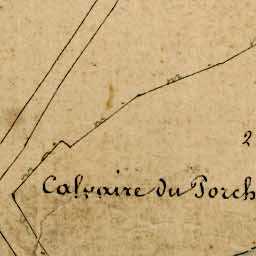 2
Calvaire du Porch